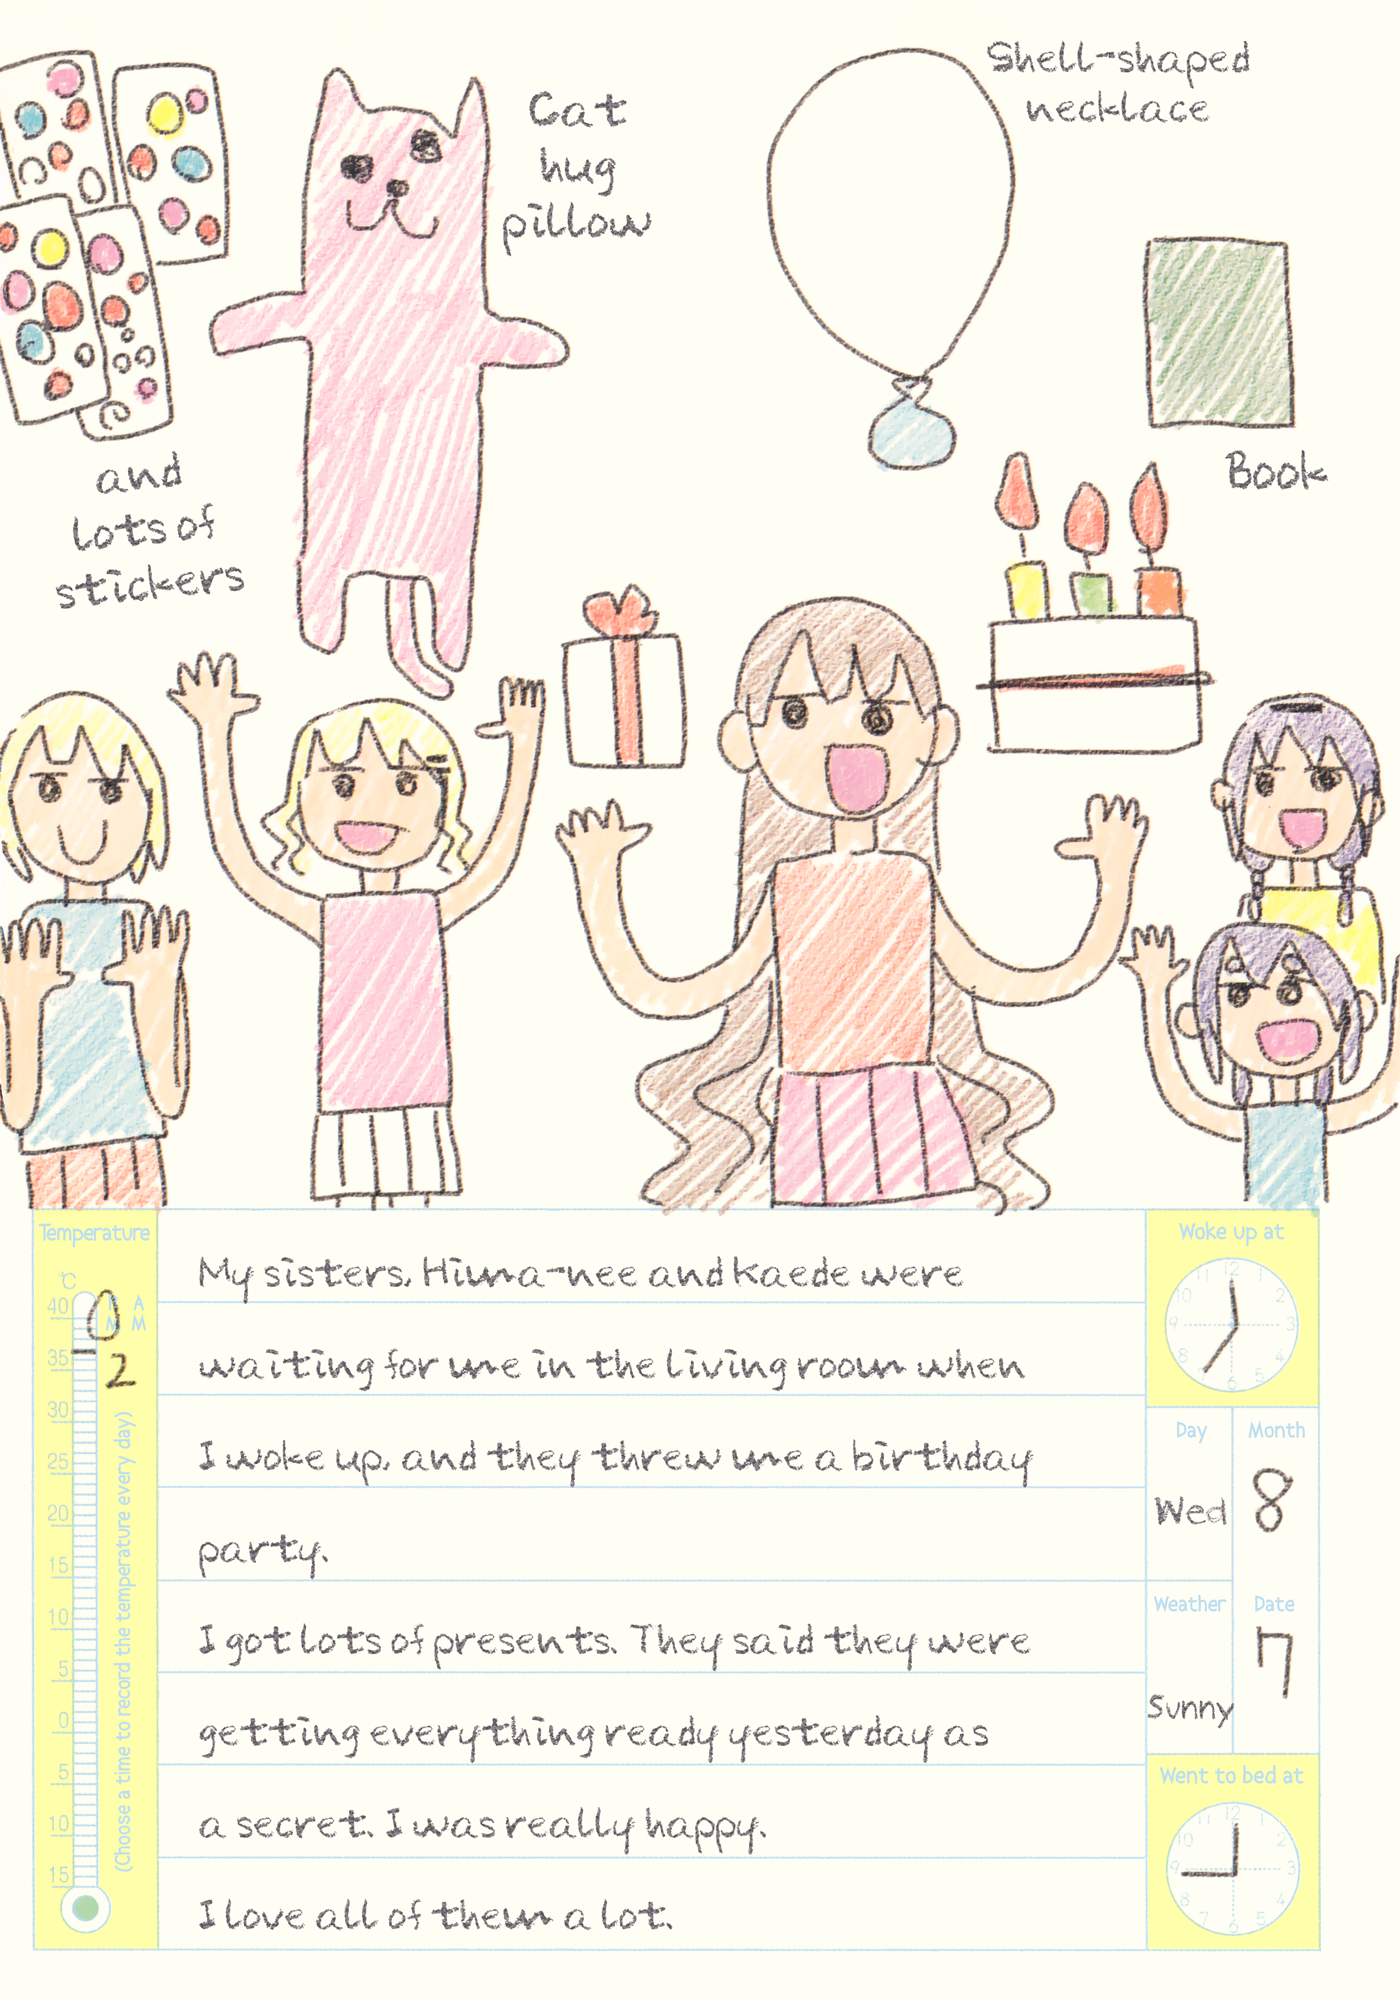 Shell-shaped
necklace
Cat
hug
pillow
Book
and
lots of
stickers
Temperature
℃
40
35
30
25
20
15
10
5
0
5
10
15
P A
M M
2
(Choose a time to record the temperature every day)
My sisters, Hima-nee and Kaede were
waiting for me in the living room when
I woke up, and they threw me a birthday
party.
I got lots of presents. They said they were
getting everything ready yesterday as
a secret. I was really happy.
I love all of them a lot.
Woke up at
12
11 1
10 2
9 3
8 4
6 5
Day
Wed
Month
8
Weather
Sunny
Date
7
Went to bed at
12
11 1
10 2
9 3
8 4
7 6 5